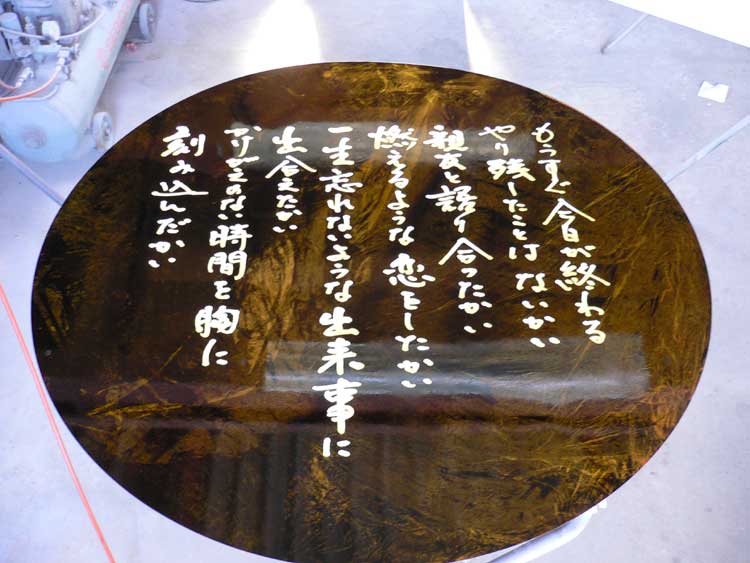 もうすぐ今日が終わる
やり残したことはないかい
親友と語り合ったかい
燃えるような恋をしたかい
一生忘れないような出来事に
出会えたかい
かけがえのない時間を胸に
刻み込んだかい